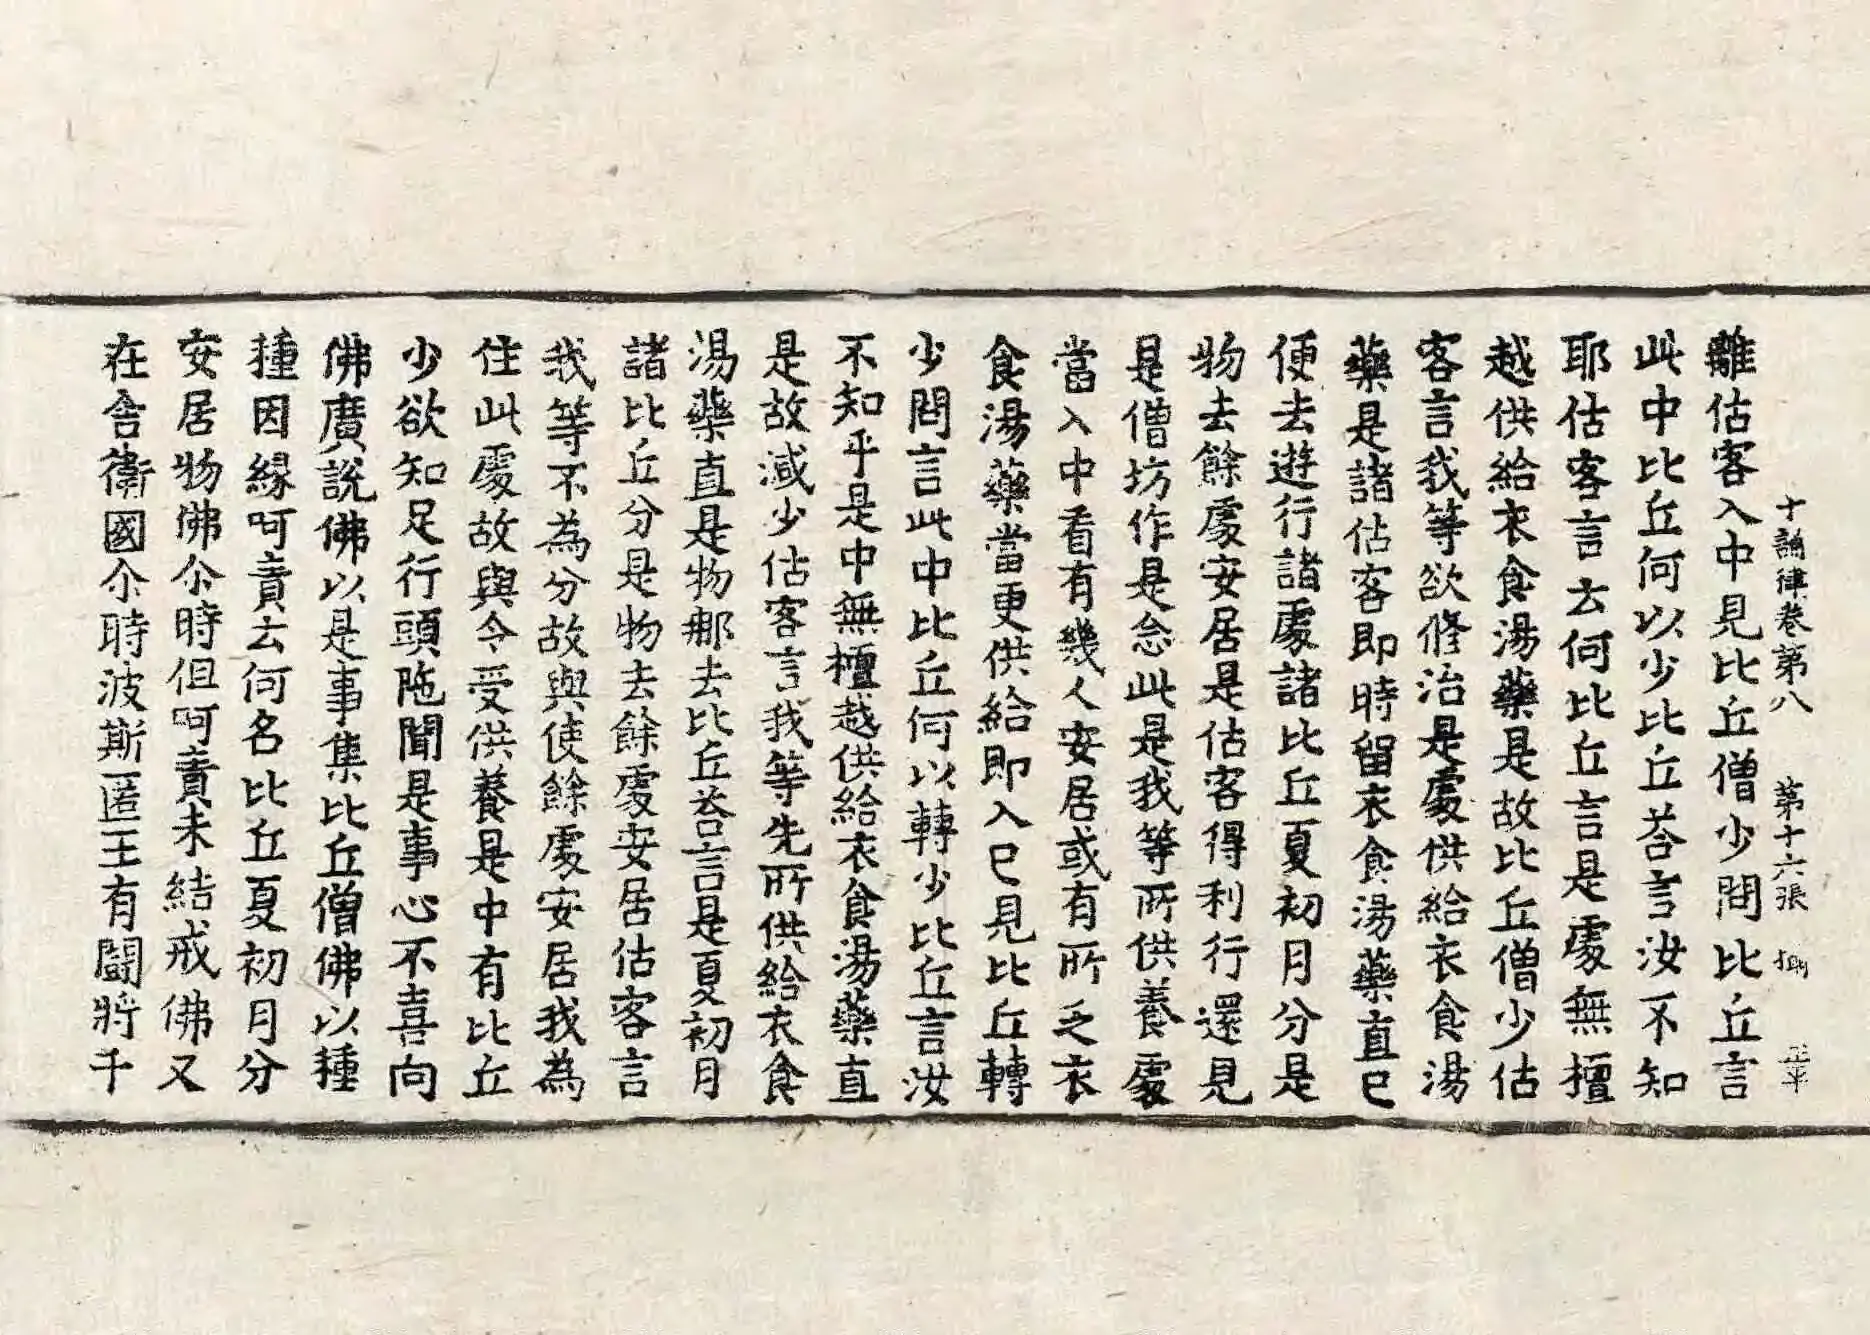 十誦律卷第八　第十六張
離估客入中見比丘僧少問比丘言
此中比丘何以少比丘荅言汝不知
耶估客言云何比丘言是處無檀
越供給衣食湯藥是故比丘僧少估
客言我等欲修治是處供給衣食湯
藥是諸估客即時留衣食湯藥直已
便去遊行諸處諸比丘夏初月分是
物去餘處安居是估客得利行還見
是僧坊作是念此是我等所供養處
當入中看有幾人安居或有所乏衣
食湯藥當更供給即入已見比丘轉
少問言此中比丘何以轉少比丘言汝
不知乎是中無檀越供給衣食湯藥直
是故減少估客言我等先所供給衣食
湯藥直是物那去比丘荅言是夏初月
諸比丘分是物去餘處安居估客言
我等不為分故與使餘處安居我為
住此處故與令受供養是中有比丘
少欲知足行頭陁聞是事心不喜向
佛廣說佛以是事集比丘僧佛以種
種因緣呵責云何名比丘夏初月分
安居物佛尒時但呵責未結戒佛又
在舍衛國尒時波斯匿王有鬪將千